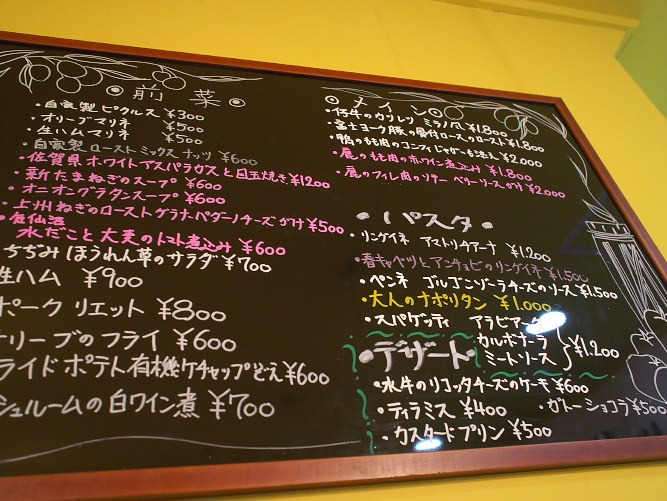 前菜
・自家製ピクルス ¥300
・オリーブマリネ ¥500
・生ハムマリネ ¥500
・自家製ローストミックスナッツ ¥600
・佐賀県ホワイトアスパラガスと目玉焼き¥1200
・新たまねぎのスープ ¥600
・オニオングラタンスープ ¥600
・上州ねぎのローストグラナ・パダーノチーズがけ¥500
・気仙沼
水だこと大麦のトマト煮込み ¥600
ちぢみほうれん草のサラダ ¥700
生ハム ¥900
ポーク リエット ¥800
リーブのフライ ¥600
ライドポテト有機ケチャップどえ¥600
シュルームの白ワイン煮 ¥700
メイン
・仔牛のカツレツ ミラノ風 ¥1.800
・富士ヨーク豚の骨付ロースのロースト¥1.800
・鴨のもも肉のコンフィじゃがいも添え ¥2.000
・鹿のもも肉の赤ワイン煮込み ¥1.800
・鹿のフィレ肉のソテー ベリーソースがけ ¥2.000
・パスタ・
・リングイネ アマトリチアーナ ¥1.200
・春キャベツとアンチョビのリングイネ ¥1.500
・ペンネ ゴルゴンゾーラチーズのソース ¥1.500
・大人のナポリタン ¥1.000
・スパゲッティ アラビアータ
カルボナーラ
ミートソース ¥1.200
・デザート・
・水牛のリコッタチーズのケーキ ¥600
・ティラミス ¥400 ・ガトーショコラ ¥500
・カスタードプリン ¥500